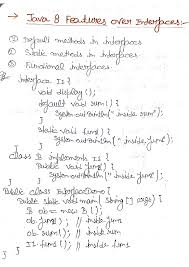 → Java 8 Features over Interfaces:-
① Default methods in interfaces
② Static methods in interfaces
③ Functional interfaces.
Interface I1 {
void display();
default void sum() {
System.out.println("inside sum");
}
static void fun1() {
System.out.println("inside fun1");
}
}
class B implements I1 {
public void fun() {
System.out.println("inside fun");
}
}
Public class {
Public static void main(String[] args) {
B ob = new B();
ob.fun(); // inside fun
ob.sum(); // inside sum
I1.fun1(); // inside fun1
}
}